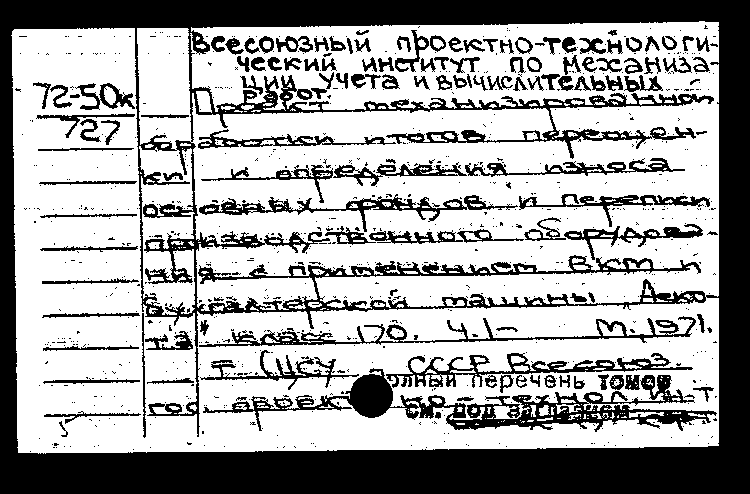 Всесоюзный проектно-технологи-
ческий институт по механиза-
ции учета и вычислительных
работ.
72-50к
727
Проект механизированной
обработки итогов переоцен-
ки и определения износа
основных фондов и переписи
производственного оборудова-
ния с применением ВКМ и
бухгалтерской машины „Аско-
та" класс 170. Ч.1- М., 1971.
т (ЦСУ СССР Всесоюз.
полный перечень томов
гос. проект но-технол. ин-т
см. под заглавием